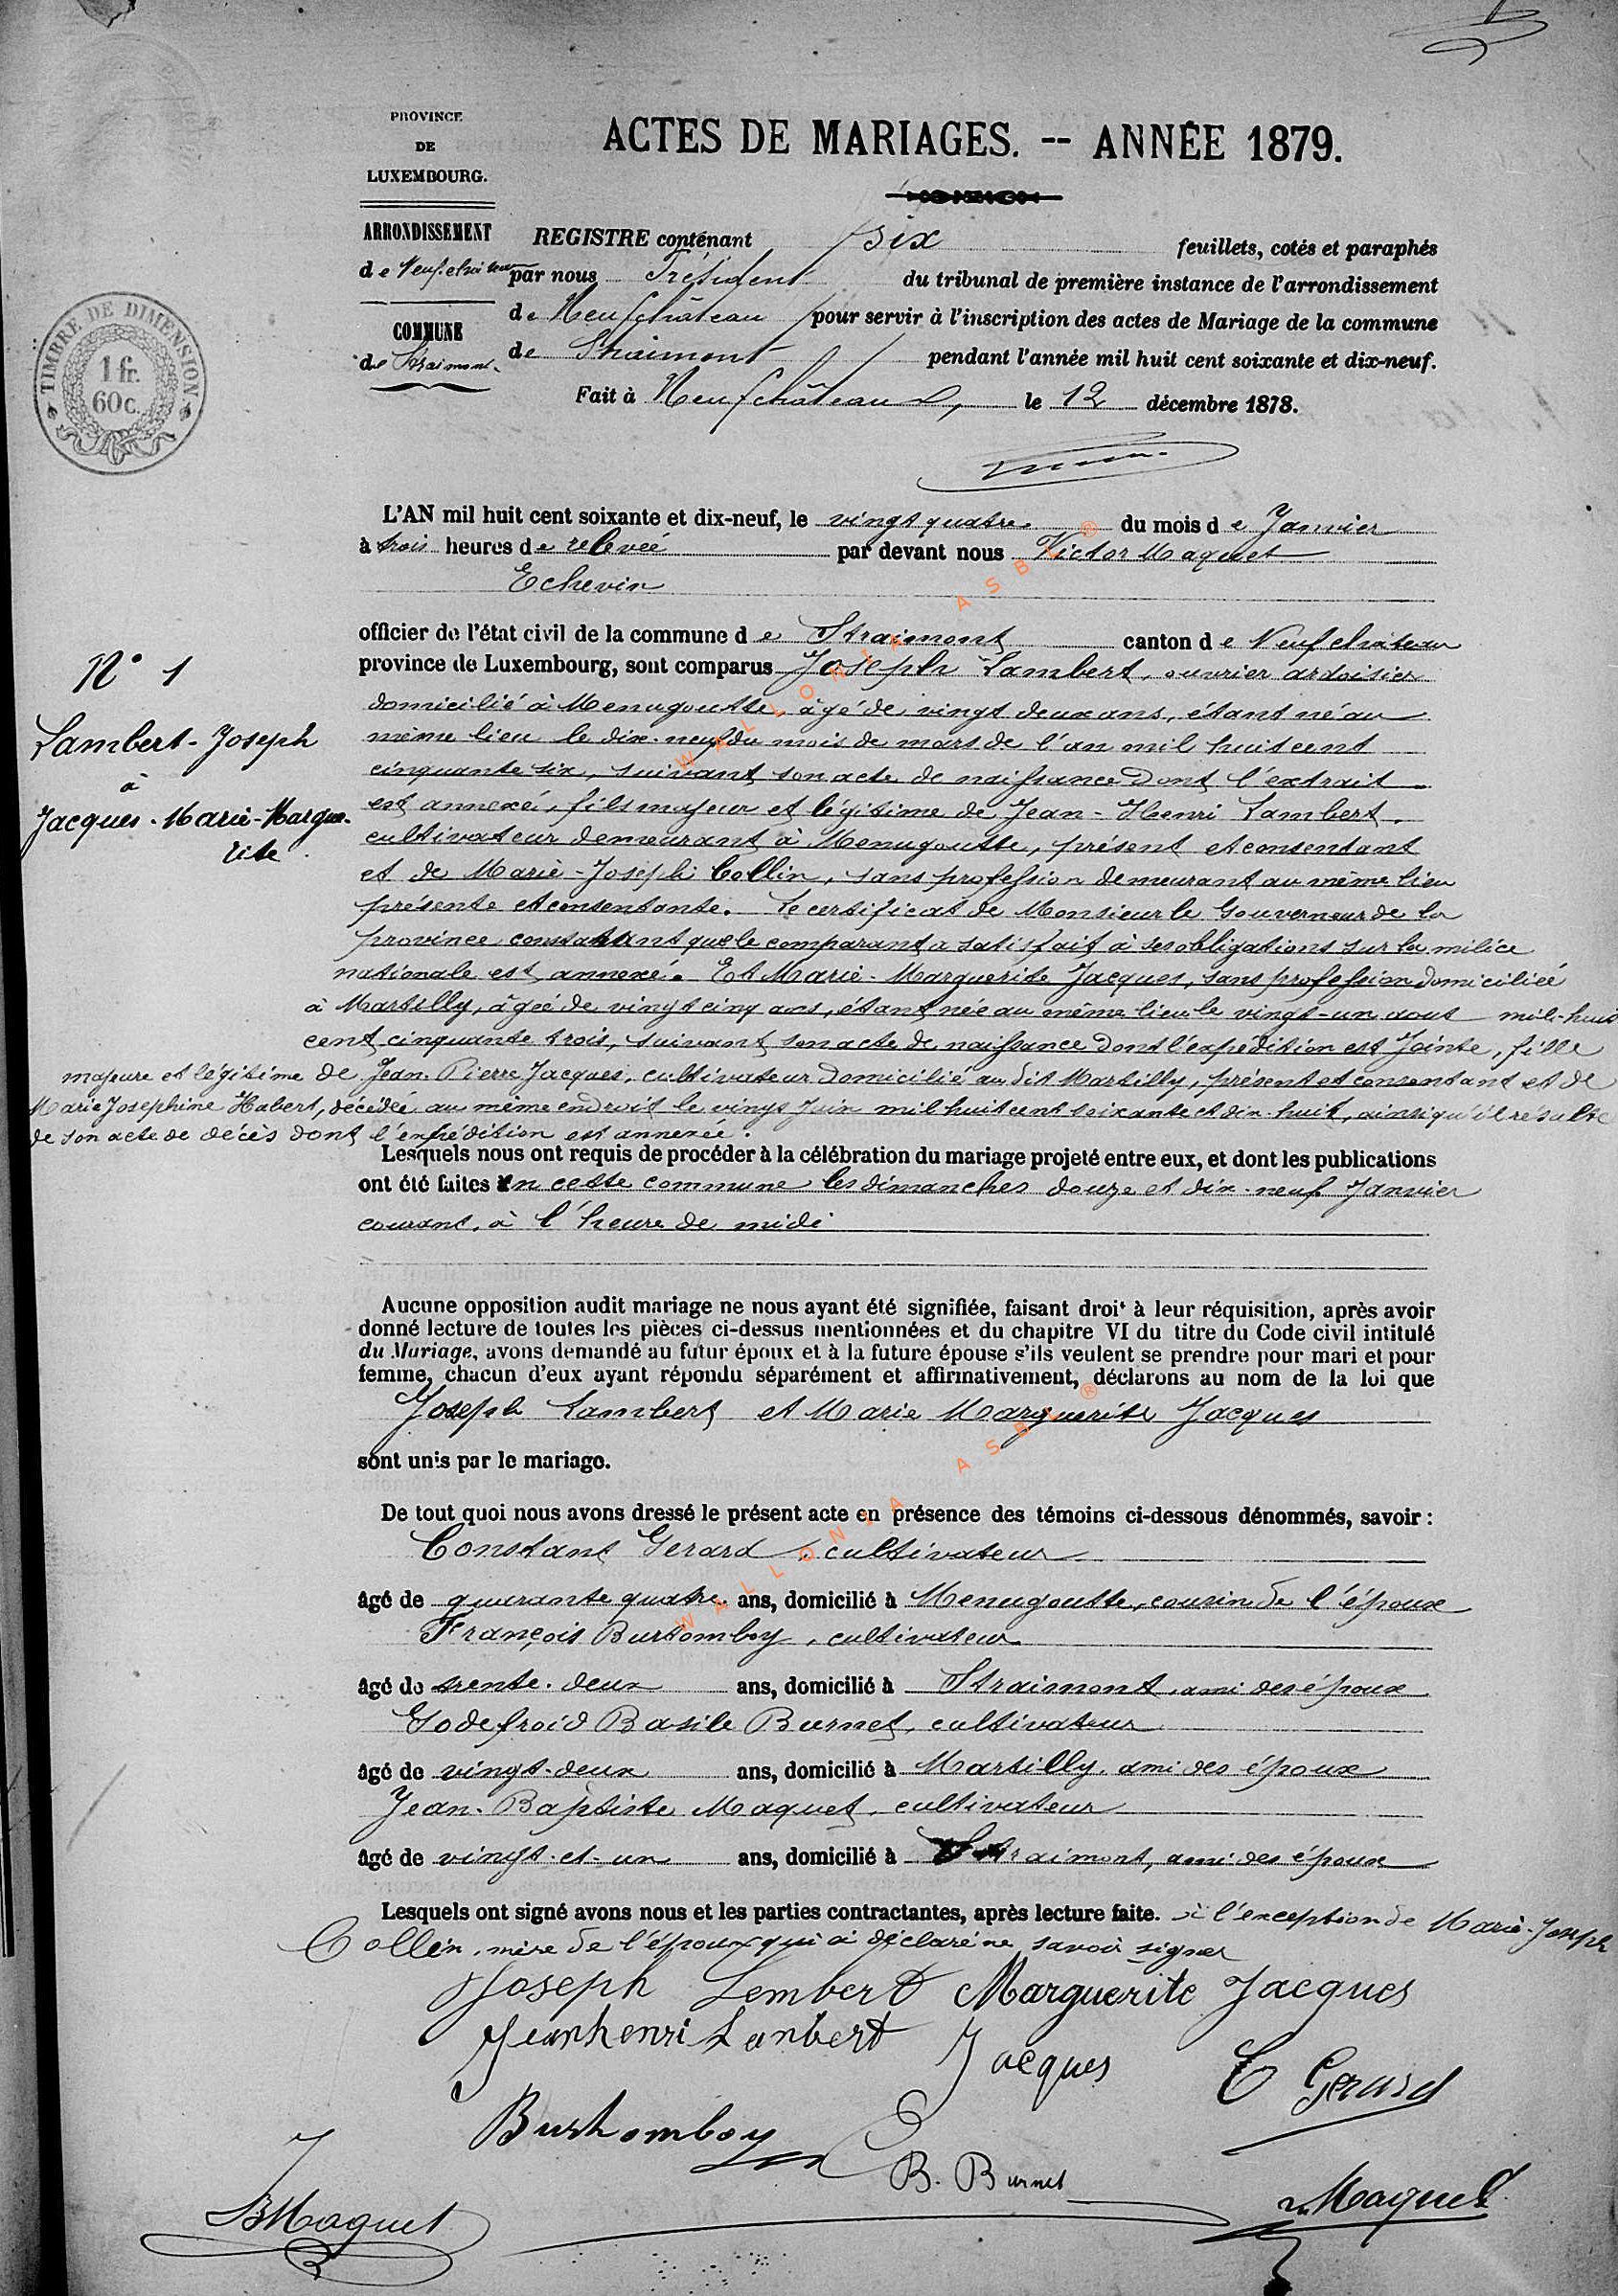 PROVINCE
DE
LUXEMBOURG.
ACTES DE MARIAGES. -- ANNÉE 1879.
ARRONDISSEMENT
de Neufchâteau
COMMUNE
de Straimont.
TIMBRE DE DIMENSION
1 fr.
60c.
REGISTRE contenant six feuillets, cotés et paraphés
par nous Président du tribunal de première instance de l'arrondissement
de Neufchâteau pour servir à l'inscription des actes de Mariage de la commune
de Straimont pendant l'année mil huit cent soixante et dix-neuf.
Fait à Neufchâteau, le 12 décembre 1878.
L'AN mil huit cent soixante et dix-neuf, le vingt quatre du mois de Janvier
à trois heures de relevée par devant nous Victor Maquet
Echevin
officier de l'état civil de la commune de Straimont canton de Neufchâteau
N° 1
Lambert-Joseph
à
Jacques-Marie-Margue-
rite.
province de Luxembourg, sont comparus Joseph Lambert, ouvrier ardoisier
domicilié à Menugoutte, âgé de vingt deux ans, étant né au
même lieu le dix-neuf du mois de mars de l'an mil huit cent
cinquante six, suivant son acte de naissance dont l'extrait
est annexé, fils majeur et légitime de Jean-Henri Lambert,
cultivateur demeurant à Menugoutte, présent et consentant
et de Marie-Joseph Collin, sans profession demeurant au même lieu
présente et consentante. Le certificat de Monsieur le Gouverneur de la
province constatant que le comparant a satisfait à ses obligations sur la milice
nationale est annexé. Et Marie-Marguerite Jacques, sans profession domiciliée
à Martilly, âgée de vingt cinq ans, étant née au même lieu le vingt-un aout mil-huit
cent cinquante trois, suivant son acte de naissance dont l'expédition est Jointe, fille
majeure et légitime de Jean-Pierre Jacques, cultivateur domicilié au dit Martilly, présent et consentant et de
Marie Josephine Habert, décédée au même endroit le vingt Juin mil huit cent soixante et dix-huit, ainsi qu'il résulte
de son acte de décès dont l'expédition est annexée.
Lesquels nous ont requis de procéder à la célébration du mariage projeté entre eux, et dont les publications
ont été faites en cette commune les dimanches douze et dix-neuf Janvier
courant, à l'heure de midi
Aucune opposition audit mariage ne nous ayant été signifiée, faisant droit à leur réquisition, après avoir
donné lecture de toutes les pièces ci-dessus mentionnées et du chapitre VI du titre du Code civil intitulé
du Mariage, avons demandé au futur époux et à la future épouse s'ils veulent se prendre pour mari et pour
femme, chacun d'eux ayant répondu séparément et affirmativement, déclarons au nom de la loi que
Joseph Lambert et Marie Marguerite Jacques
sont unis par le mariage.
De tout quoi nous avons dressé le présent acte en présence des témoins ci-dessous dénommés, savoir :
Constant Gerard, cultivateur
âgé de quarante quatre ans, domicilié à Menugoutte, cousin de l'époux
François Burhomboy, cultivateur
âgé de trente-deux ans, domicilié à Straimont, ami des époux
Godefroid Basile Burnet, cultivateur
âgé de vingt-deux ans, domicilié à Martilly, ami des époux
Jean-Baptiste Maquet, cultivateur
âgé de vingt-et-un ans, domicilié à Straimont, ami des époux
Lesquels ont signé avons nous et les parties contractantes, après lecture faite. à l'exception de Marie-Joseph
Collin, mère de l'époux qui a déclaré ne savoir signer
Joseph Lembert Marguerite Jacques
Jeanhenri Lanbert Jacques C Gerard
Burhomboy
B. Burnet
JBMaquet
V. Maquet
WALLONIA ASBL ®
WALLONIA ASBL ®